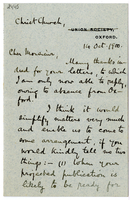 Christ Church,
UNION SOCIETY,
OXFORD.
14 Oct. 1900.
Cher Monsieur,
Many thanks
and for your letters, to which
I am only now able to reply,
owing to absence from Ox-
ford.
I think it would
simplify matters very much
and enable us to come to
some arrangement, if you
would kindly tell me two
things:— (1) When your
projected publication is
likely to be ready for